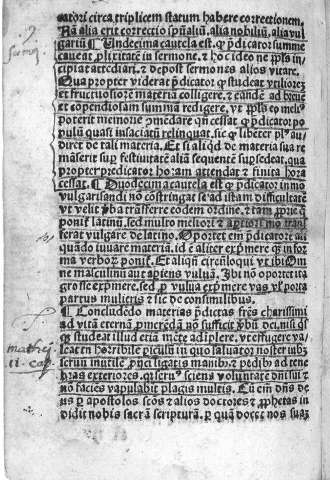 catori circa triplicem statum habere correctionem.
Nã alia erit correctio sp̃ualiũ, alia nobiliũ, alia vul
gariũ ¶ Undecima cautela est. q̃ p̃dicator summe
caveat p̃lixitatẽ in sermone. & hoc ideo ne pp̃ls in
cipiat attediari. & d̃post sermones alios vitare.
Qua propter viderat p̃dicator q̃ studeat vtiliorẽ
et fructuosiorẽ materiã colligere, & eandẽ ad breuẽ
et cõpendiosam summã redigere, vt pp̃ls eo meli9
poterit memorie ̃mẽdare qñ cessat q̃ p̃dicator po
pulũ quasi insaciatũ relinquat. sic q̃ libeter pl9 au/
diret de tali materia. Et si aliq̃d de materia sua re
mãserit sup festiuitatẽ aliã sequentẽ supsedeat. qua
propter predicator horam attendat & finita hora
cesset. ¶ Duodecima cautela est q̃ p̃dicator in mo
vulgarisandi nõ cõstringat se ad istam difficultatẽ
vt velit ̃ba trãsferre eodem ordine, & tam p̃prie q̃
ponit̃ latinũ, sed multo meliori & aptiori mo trãs
ferat vulgare de latino. Oportet em̃ p̃dicatorẽ ali
quãdo iuuare materiã. id ẽ aliter exp̃mere q̃ in for
ma verboꝝ ponit̃. Et aliqñ circũloqui vt ibi Om
ne masculinũ aut apiens vuluã. Ibi nõ oportet ita
grosse exp̃mere. sed p vuluã exp̃mere vas, vel porta
partus mulieris & sic de consimilibus.
¶ Concludẽdo materias p̃dictas fr̃es charissimi
ad vitã eternã p̃merẽdam nõ sufficit ̃bũ dei, nisi q̃s
q̃ studeat illud etiã mẽte adĩplere. vt effugere va/
leat in horribile piculũ in quo saluator noster iubz
seruũ inutilẽ p̃nci ligatis manib9. & pedib9 ad tene
bras exteriores. q̃ seru9 sciens voluntatẽ dñi sui &
nõ faciẽs vapulabit plagis multis. Cũ em̃ dñs de
us p apostolos scõs & alios doctores & p̃phetas in
didit nobis sacrã scripturã. p quã docet nos suaz
mathei